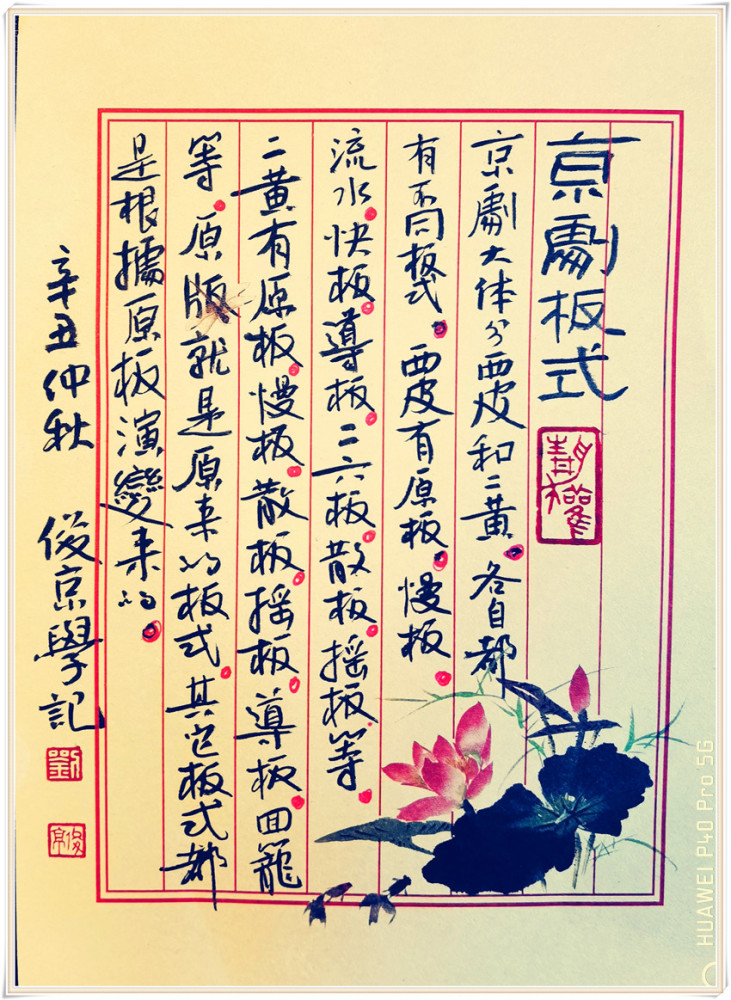 京劇板式
京劇大体分西皮和二黄。各自都
有不同板式。西皮有原板。慢板
流水。快板。導板。二六板。散板。摇板等。
二黄有原板。慢板。散板。摇板。導板。回籠
等。原版就是原来的板式。其它板式都
是根據原板演變来的。
辛丑仲秋 俊京學記
劉
俊京
HUAWEI P40 Pro 5G